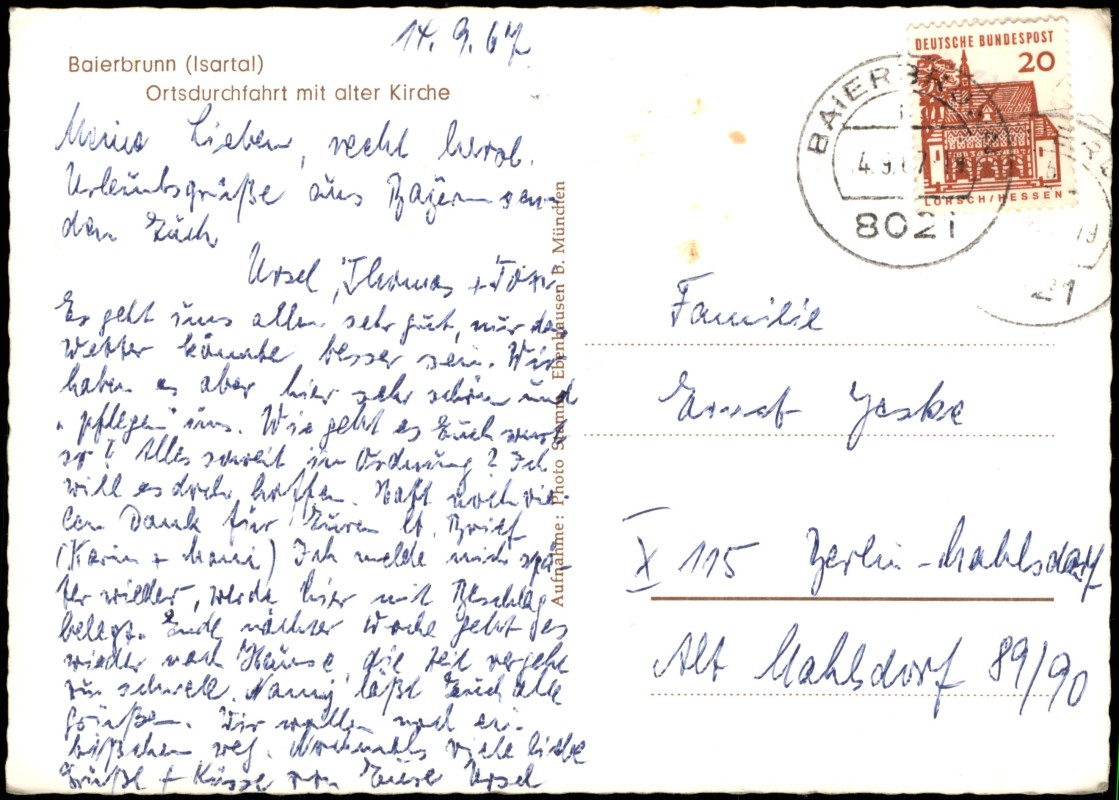 14. 9. 67
Baierbrunn (Isartal)
Ortsdurchfahrt mit alter Kirche
Meine Lieben, recht herzl.
Urlaubsgrüße aus Bayern sen-
den Euch
Ursel, Thomas +
Es geht uns allen sehr gut, nur das
Wetter könnte besser sein. Wir
haben es aber hier sehr schön und
"pflegen" uns. Wie geht es Euch sonst
so? Alles soweit in Ordnung? Ich
will es doch hoffen. Habt noch vie-
len Dank für Euren lb. Brief
(Karin + Mani) Ich melde mich spä-
ter wieder, werde hier mit Beschlag
belegt. Ende nächster Woche geht es
wieder nach Hause, die Zeit vergeht
zu schnell. läßt Euch alle
grüßen. Wir wollen noch ein
bißchen weg. Nochmals viele liebe
Grüße + Küsse von Eurer Ursel
Aufnahme: Photo Stamm, Ebenhausen B. München
DEUTSCHE BUNDESPOST
20
LORSCH/HESSEN
BAIERBRUNN
4.9.67
8021
21
Familie
Ernst Jeske
X 115 Berlin-Mahlsdorf
Alt Mahlsdorf 89/90